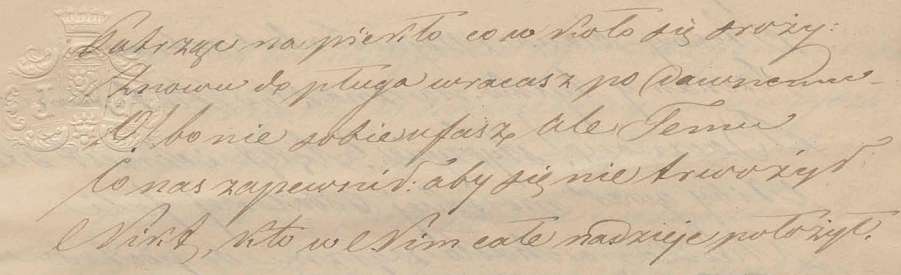 Patrząc na piekło co w koło się sroży:
Znowu do pługa wracasz po dawnemu –
O! bo nie sobie ufasz, ale Temu
Co nas zapewnił: aby się nie trwożył
Nikt, kto w Nim całe nadzieje położył.